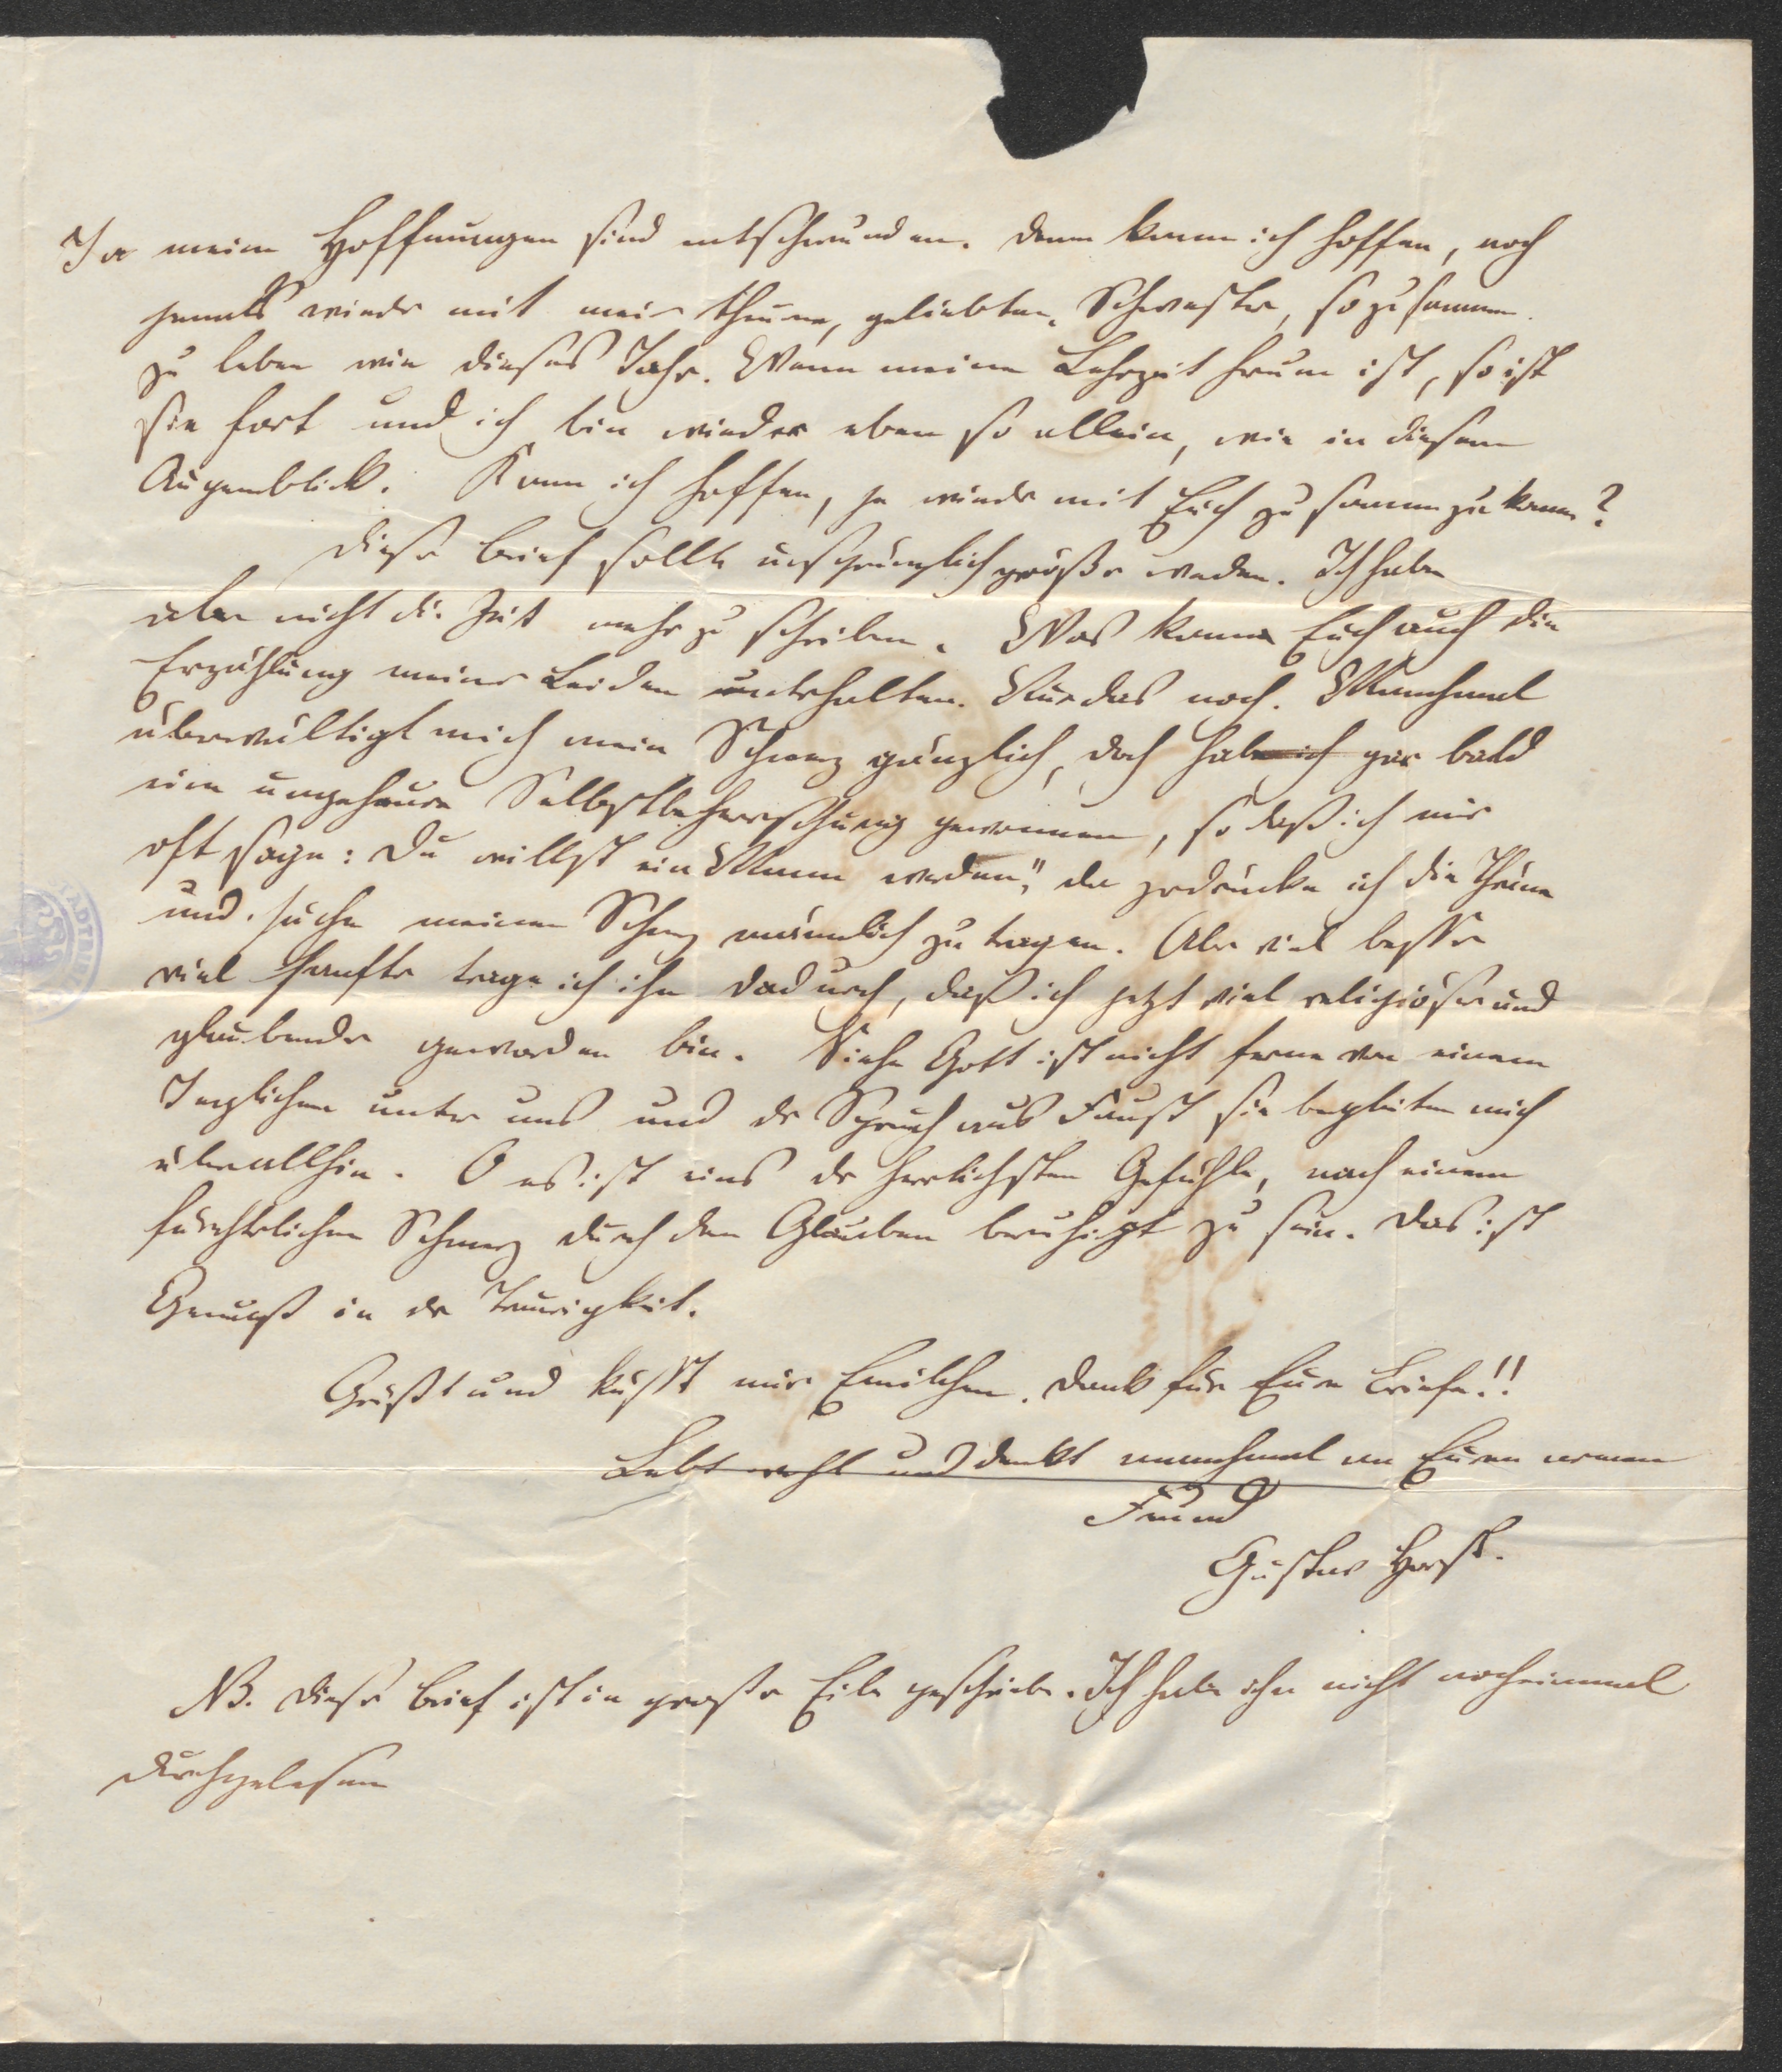 Ja meine Hoffnungen sind entschwunden. Denn kann ich hoffen, noch
jemals wieder mit meiner theuren, geliebten, Schwester, so zusammen
zu leben wie dieses Jahr. Wenn meine Lehrzeit herum ist, so ist
sie fort und ich bin wieder eben so allein, wie in diesem
Augenblick. Kann ich hoffen, je wieder mit Euch zusammenzukommen?
Dieser Brief sollte ursprünglich größer werden. Ich habe
aber nicht die Zeit mehr zu schreiben. Was kann Euch auch die
Erzählung meiner Leiden unterhalten. Nur das noch. Manchmal
überwältigt mich mein Schmerz gänzlich, doch habe ich gar bald
eine ungeheure Selbstbeherrschung gewonnen, so daß ich mir
oft sage: Du willst ein Mann werden," da zerdrücke ich die Thräne
und suche meinen Schmerz männlich zu tragen. Aber viel besser
viel sanfter trage ich ihn dadurch, daß ich jetzt viel religiöser und
glaubender geworden bin. Siehe Gott ist nicht ferne von einem
Jeglichen unter uns und der Spruch aus Faust sie begleiten mich
überallhin. O es ist eins der herrlichsten Gefühle, nach einem
fürchterlichen Schmerz durch den Glauben beruhigt zu sein. Das ist
Genuß in der Traurigkeit.
Grüßt und küßt mir Emilchen. Dank für Eure Briefe!!
Lebt wohl und denkt manchmal an Euren armen
Freund
Gustav Horst.
NB. Dieser Brief ist in großer Eile geschrieben. Ich habe ihn nicht nocheinmal
durchgelesen